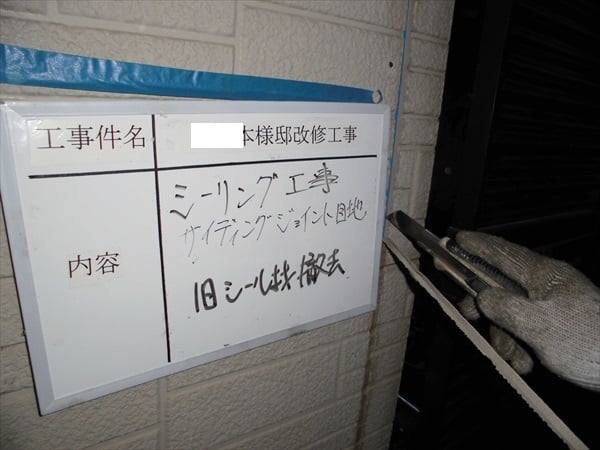 工事件名
本様邸改修工事
内容
シーリング工事
サイディングジョイント目地
旧シール材撤去